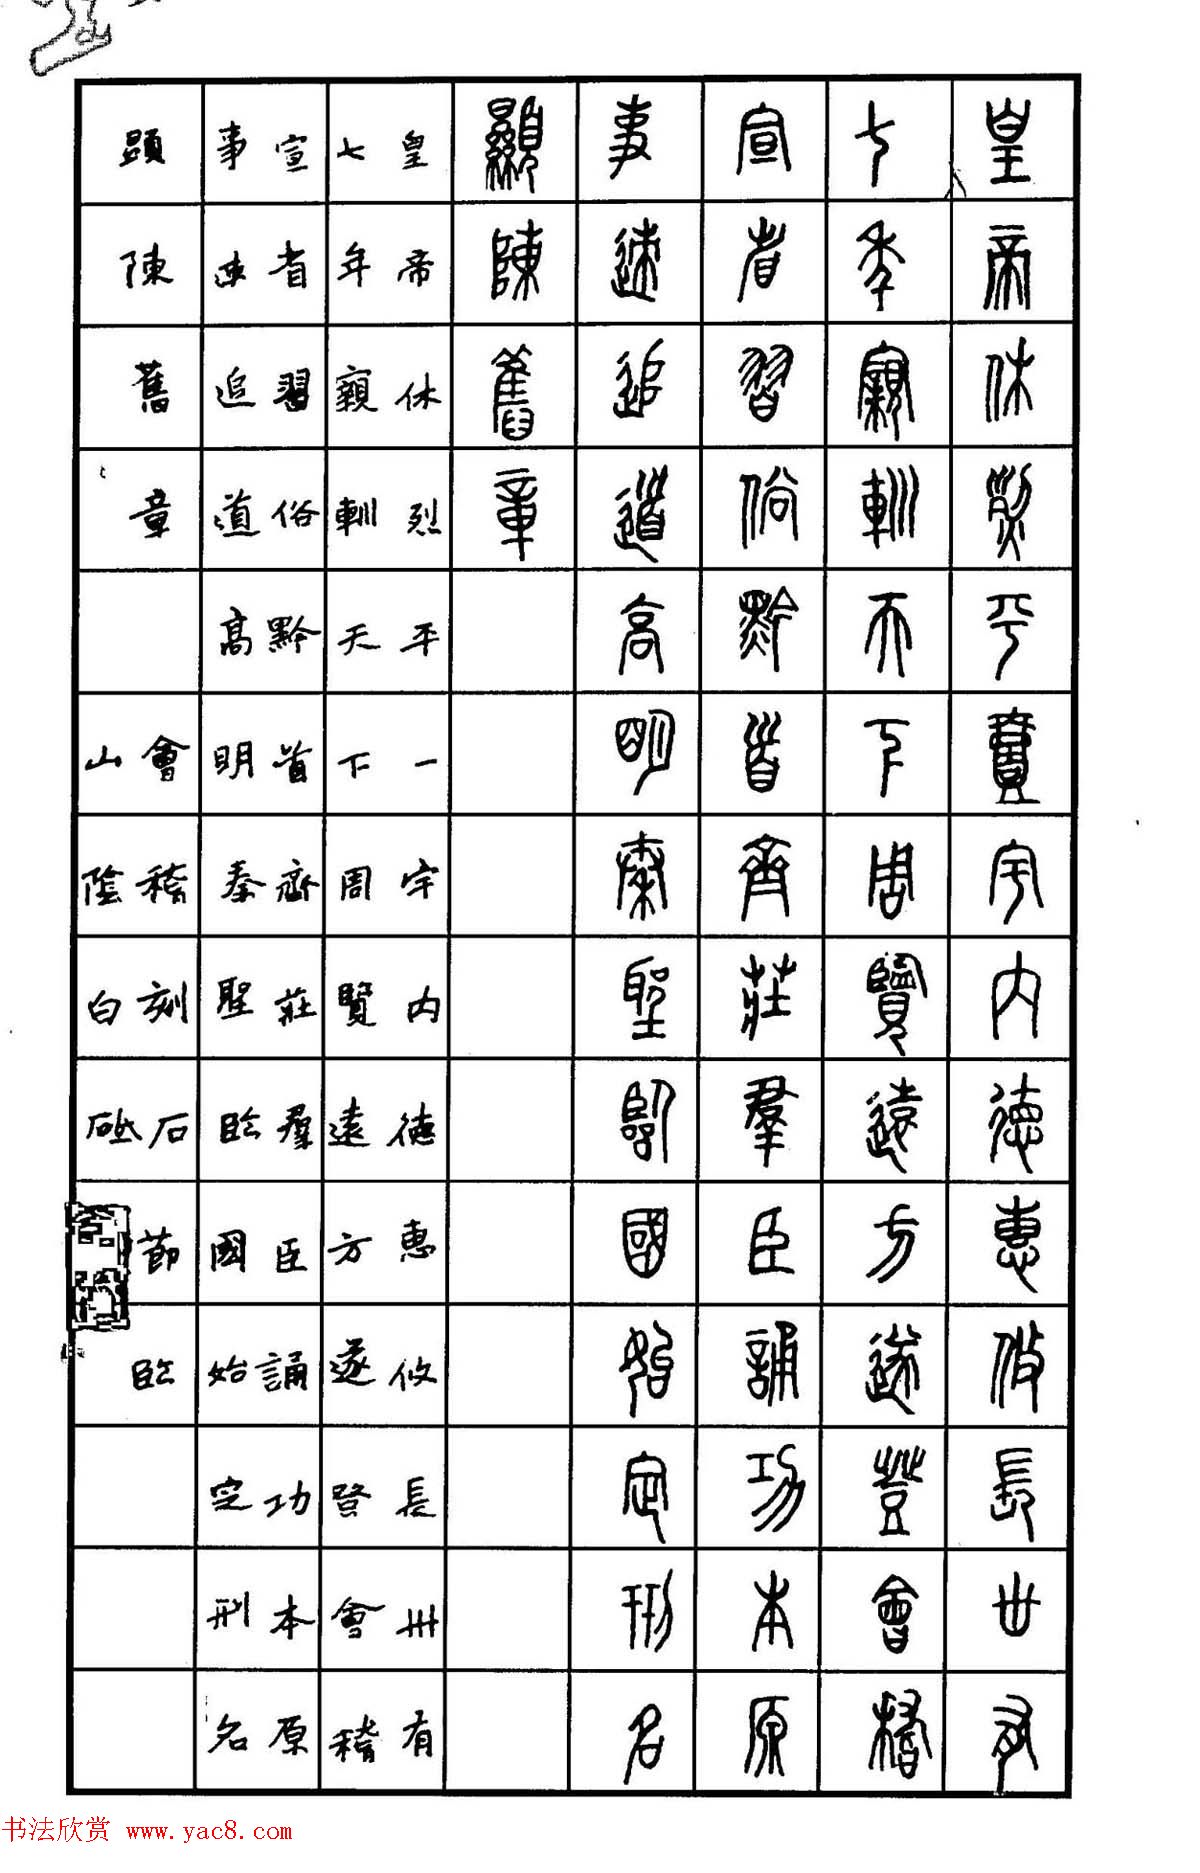 皇帝休烈平壹宇内德惠攸長世有
七年親䡅天下周覽遠方遂登會稽
宣省習俗黔首齊莊羣臣誦功本原
事速追道高明秦聖臨國始定刑名
顯陳舊章
皇帝休烈平一宇内德惠攸長卅有
七年親䡅天下周覽遠方遂登會稽
宣省習俗黔首齊莊羣臣誦功本原
事速追道高明秦聖臨國始定刑名
顯陳舊章
會稽刻石節臨
山陰白砥
书法欣赏 www.yac8.com